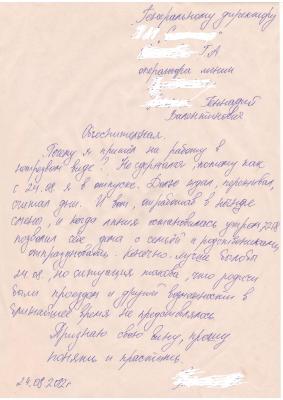 Генеральному директору
Г.А.
оператора линии
Геннадий
Валентинович
Объяснительная.
Почему я пришёл на работу в
нетрезвом виде? Не сдержался, потому как
с 24.08 я в отпуске. Долго ждал, переживал,
считал дни. И вот, отработав в ночную
смену, и когда линия остановилась утром 22.08
позволил себе дома с семьёй и родственниками,
отпраздновать. Конечно лучше было бы
24.08, но ситуация такова, что родичи
были проездом и другой возможности в
ближайшее время не представлялось
Признаю свою вину, прошу
понять и простить.
24.08.2012г.